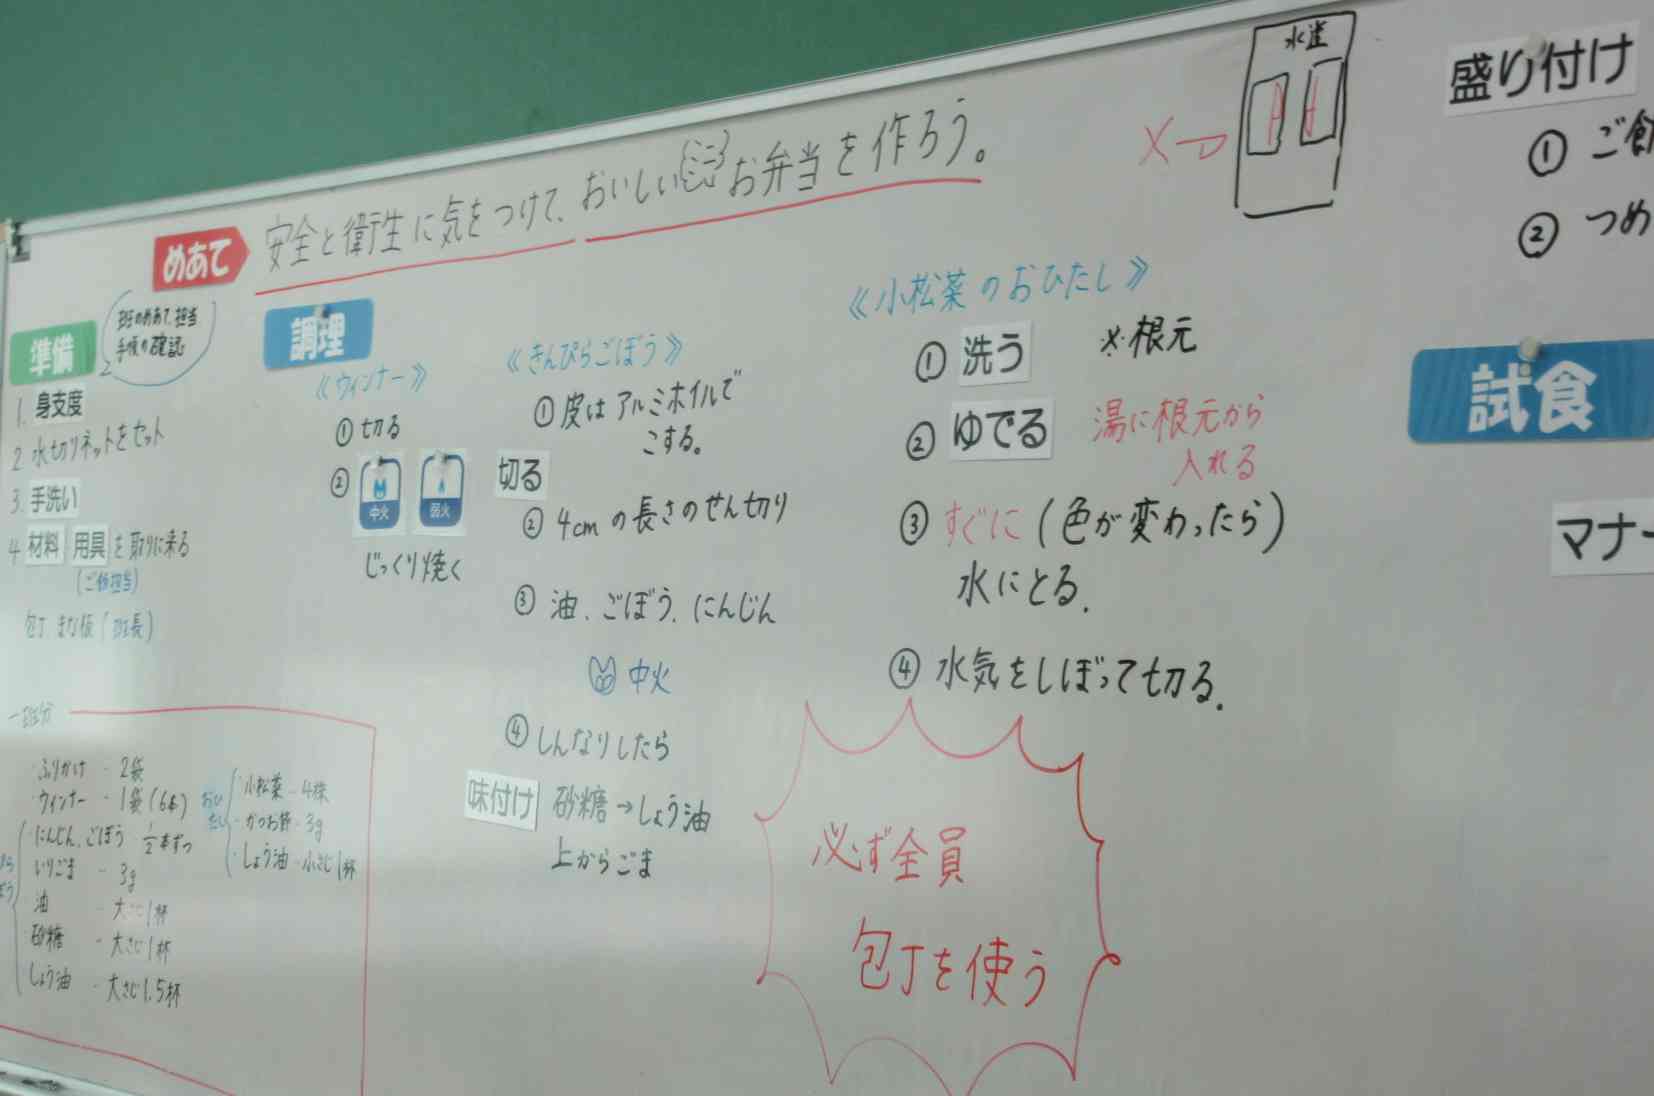 めあて 安全と衛生に気をつけて、おいしいミニお弁当を作ろう。
準備
班のめあて、担当
手順の確認
1. 身支度
2 水切りネットをセット
3. 手洗い
4 材料 用具 を取りに来る
(ご飯担当)
包丁 まな板 (班長)
一班分
・ふりかけ - 2袋
・ウィンナー - 1袋(6本)
・にんじん、ごぼう 1/2本ずつ
・いりごま - 3g
・油 - 大さじ1杯
・砂糖 - 大さじ1杯
・しょう油 - 大さじ1.5杯
おひたし
・小松菜 - 4株
・かつお節 - 3g
・しょう油 - 小さじ1杯
調理
《ウィンナー》
① 切る
② 中火 弱火
じっくり焼く
《きんぴらごぼう》
① 皮はアルミホイルで
こする。
切る
② 4cmの長さのせん切り
③ 油、ごぼう、にんじん
中火
④ しんなりしたら
味付け 砂糖→しょう油
上からごま
《小松菜のおひたし》
① 洗う ※根元
② ゆでる 湯に根元から
入れる
③ すぐに(色が変わったら)
水にとる。
④ 水気をしぼって切る。
必ず全員
包丁を使う
水道
盛り付け
① ご飯
② つめ
試食
マナー